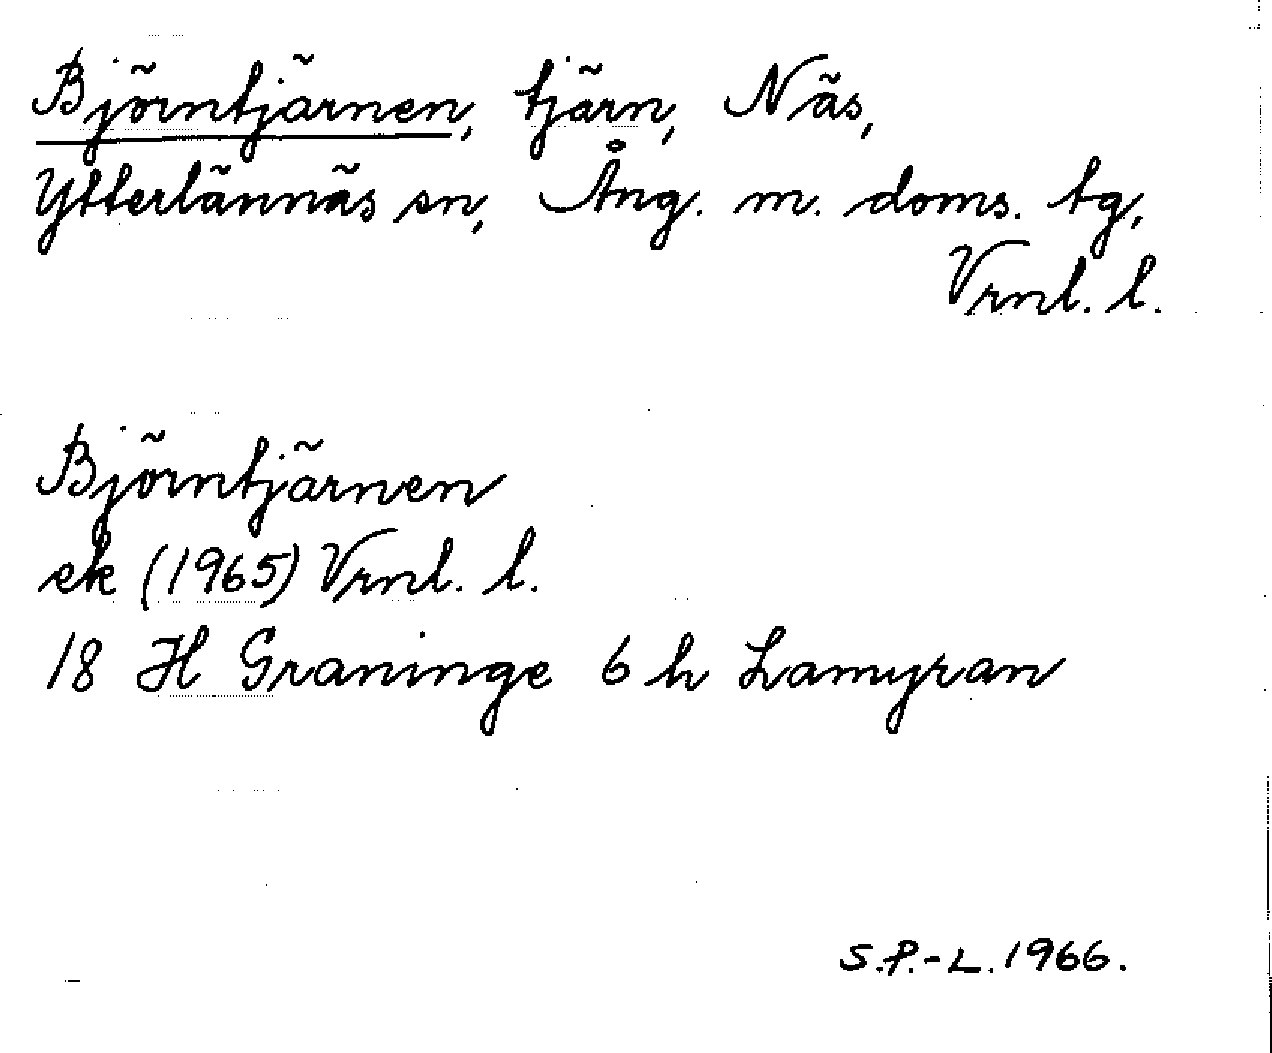 Björntjärnen, tjärn, Näs,
Ytterlännäs sn, Ång. m. doms. tg,
Vrnl. l.
Björntjärnen
ek (1965) Vrnl. l.
18 H Graninge 6 h Lamyran
S.P.-L. 1966.